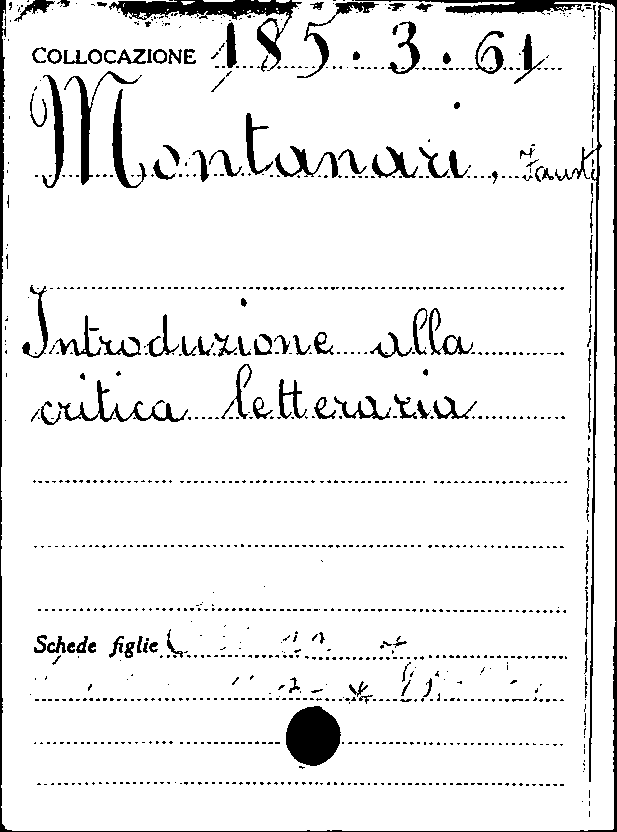 COLLOCAZIONE 185.3.61
Montanari, Fausto
Introduzione alla
critica letteraria
Schede figlie